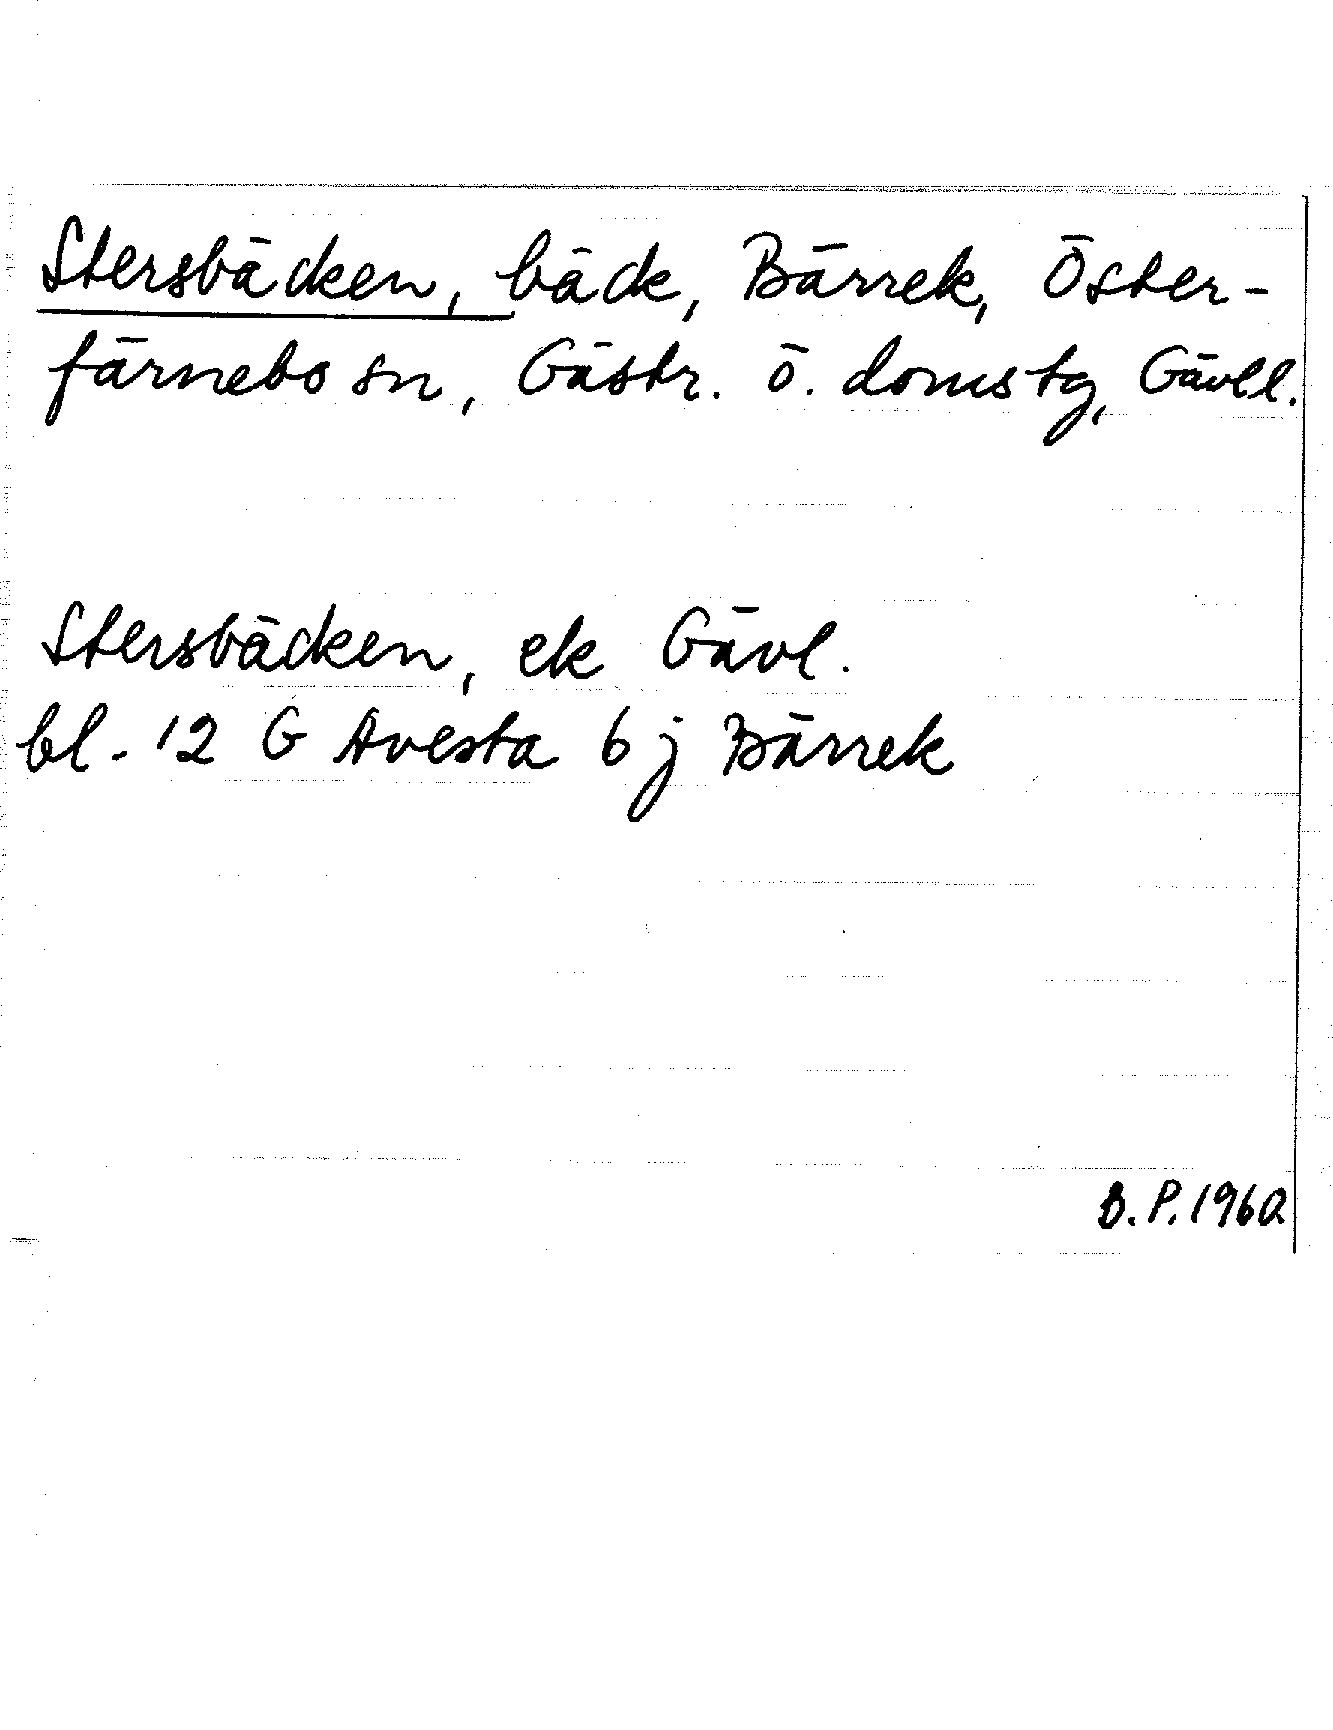 Stersbäcken, bäck, Bärrek, Öster-
färnebo sn, Gästr. ö. domstg, Gävll.
Stersbäcken, ek Gävl.
bl. 12 G Avesta 6 j Bärrek
B. P. 1960